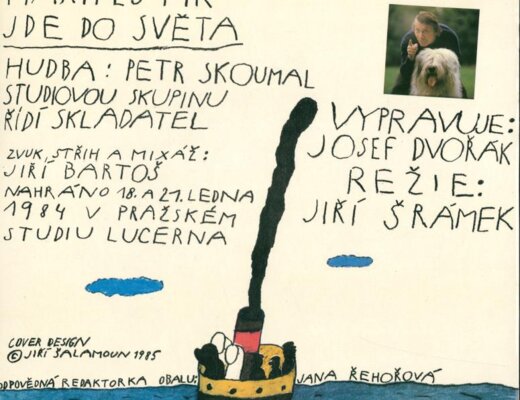 JDE DO SVĚTA
HUDBA: PETR SKOUMAL
STUDIOVOU SKUPINU
ŘÍDÍ SKLADATEL
ZVUK, STŘIH A MIXÁŽ:
JIŘÍ BARTOŠ
NAHRÁNO 18. A 21. LEDNA
1984 V PRAŽSKÉM
STUDIU LUCERNA
VYPRAVUJE:
JOSEF DVOŘÁK
REŽIE:
JIŘÍ ŠRÁMEK
COVER DESIGN
© JIŘÍ ŠALAMOUN 1985
ODPOVĚDNÁ REDAKTORKA OBALU: JANA ŘEHOŘOVÁ